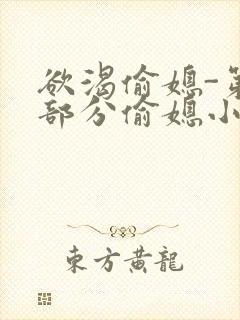 欲渴偷媳-第
部分偷媳小
東方黃龍